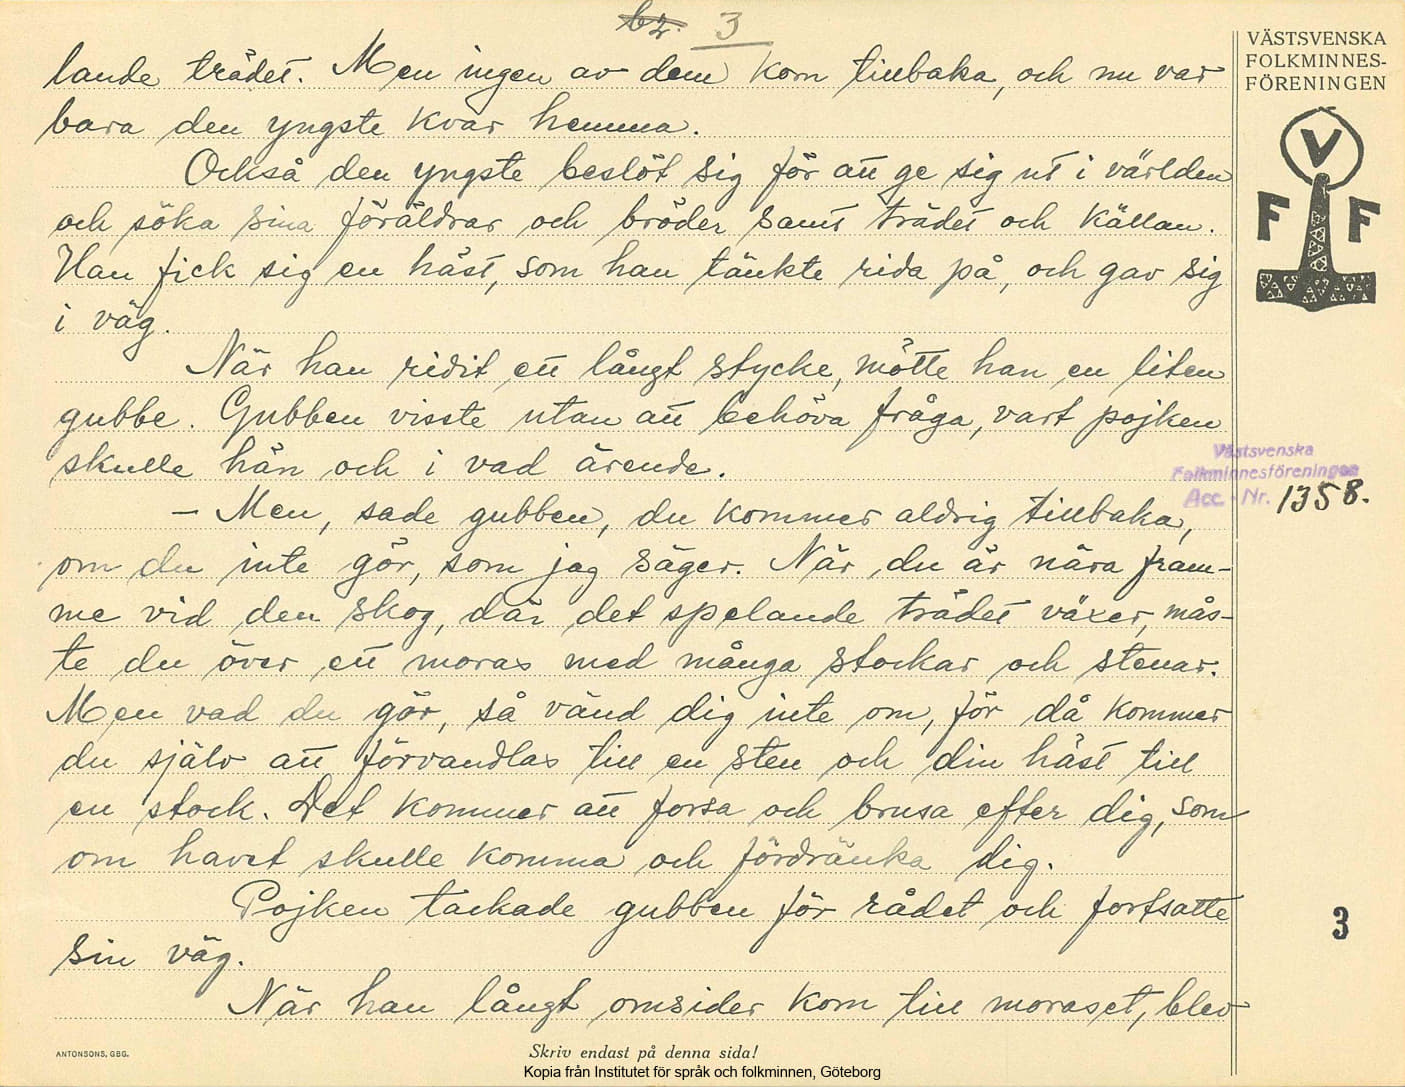 3
lande trädet. Men ingen av dem kom tillbaka, och nu var
bara den yngste kvar hemma.
Också den yngste beslöt sig för att ge sig ut i världen
och söka sina föräldrar och bröder samt trädet och källan.
Han fick sig en häst, som han tänkte rida på, och gav sig
i väg.
När han ridit ett långt stycke, mötte han en liten
gubbe. Gubben visste utan att behöva fråga, vart pojken
skulle hän och i vad ärende.
– Men, sade gubben, du kommer aldrig tillbaka,
om du inte gör, som jag säger. När du är nära fram-
me vid den skog, där det spelande trädet växer, mås-
te du över ett moras med många stockar och stenar.
Men vad du gör, så vänd dig inte om, för då kommer
du själv att förvandlas till en sten och din häst till
en stock. Det kommer att forsa och brusa efter dig, som
om havet skulle komma och fördränka dig.
Pojken tackade gubben för rådet och fortsatte
sin väg.
När han långt omsider kom till moraset, blev
VÄSTSVENSKA
FOLKMINNES-
FÖRENINGEN
V
F F
Västsvenska
Folkminnesföreningen
Acc. - Nr. 1358.
3
ANTONSONS, GBG.
Skriv endast på denna sida!
Kopia från Institutet för språk och folkminnen, Göteborg